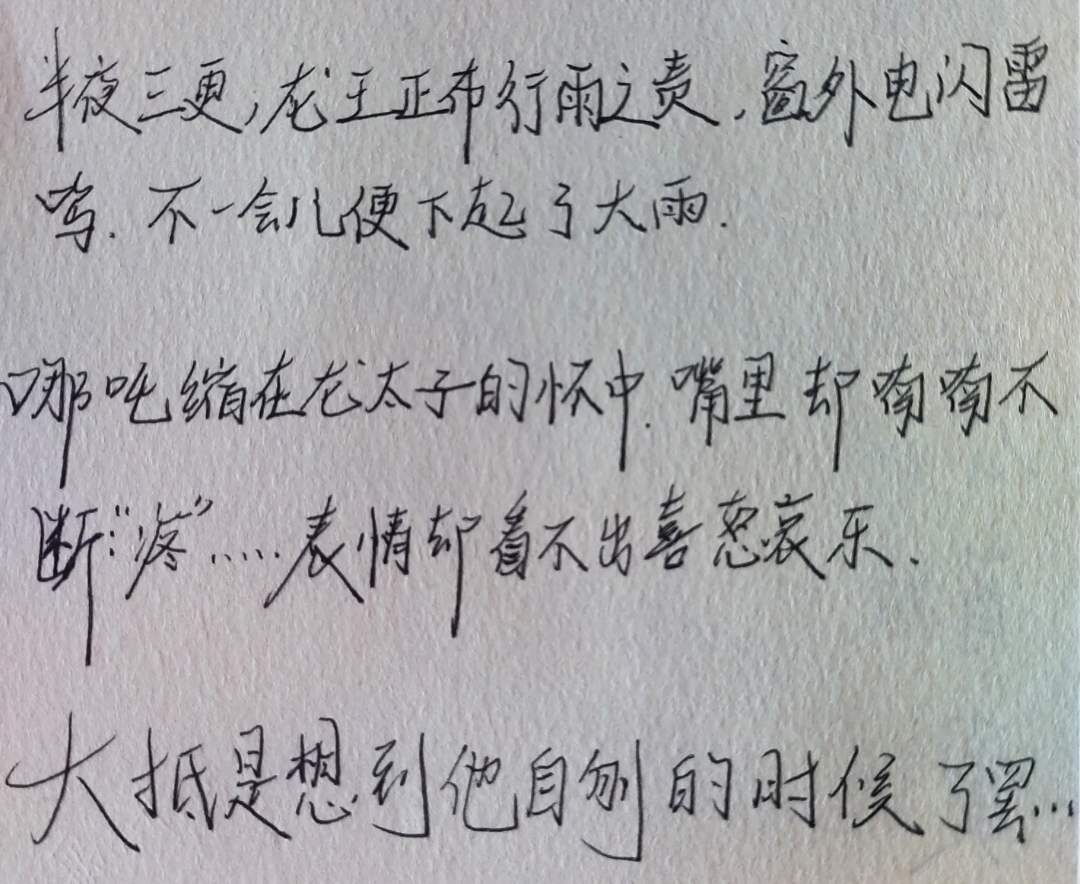 半夜三更,龙王正布行雨之责,窗外电闪雷
鸣.不一会儿便下起了大雨.
哪吒缩在龙太子的怀中.嘴里却喃喃不
断:“疼”……表情却看不出喜怒哀乐.
大抵是想到他自刎的时候了罢…